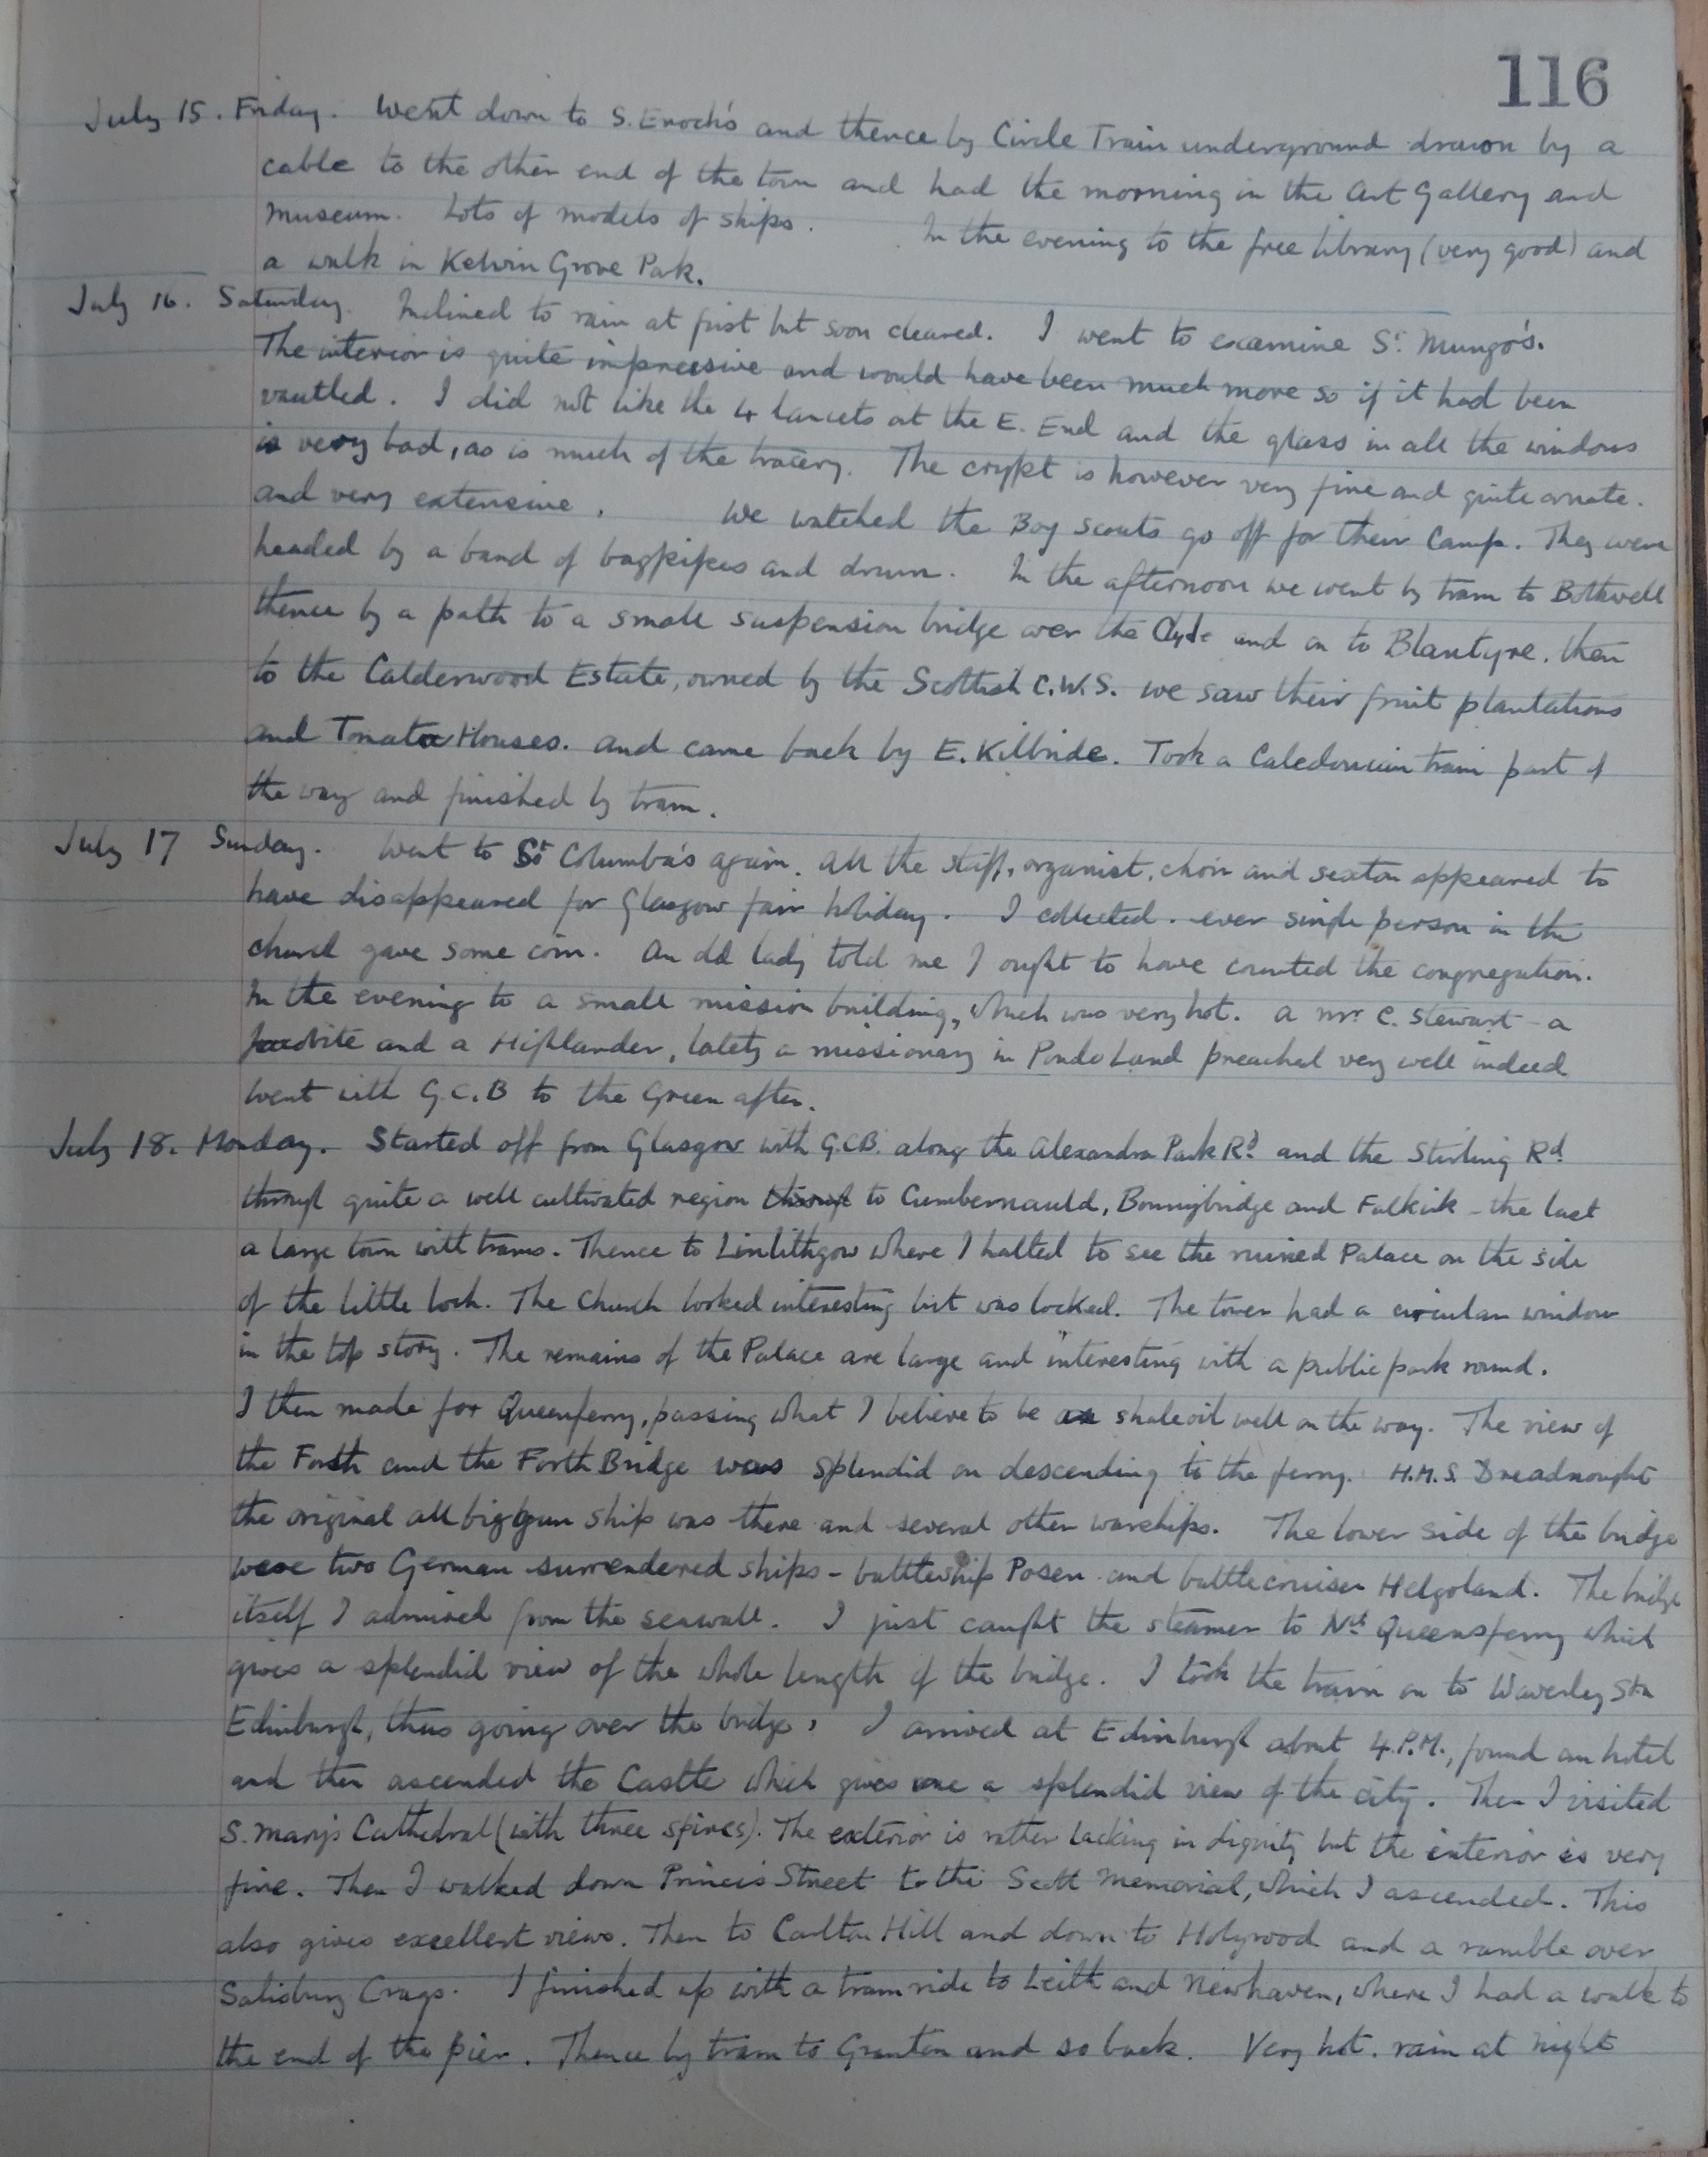 116
July 15. Friday. Went down to S. Enoch's and thence by Circle Train underground drawn by a
cable to the other end of the town and had the morning in the Art Gallery and
museum. Lots of models of ships. In the evening to the free library (very good) and
a walk in Kelvin Grove Park.
July 16. Saturday. Inclined to rain at first but soon cleared. I went to examine St. Mungo's.
The interior is quite impressive and would have been much more so if it had been
vaulted. I did not like the 4 lancets at the E. End and the glass in all the windows
is very bad, as is much of the tracery. The crypt is however very fine and quite ornate.
and very extensive. We watched the Boy scouts go off for their Camp. They were
headed by a band of bagpipes and drum. In the afternoon we went by tram to Bothwell
thence by a path to a small suspension bridge over the Clyde and on to Blantyre. then
to the Calderwood Estate, owned by the Scottish C.W.S. we saw their fruit plantations
and Tomato Houses. and came back by E. Kilbride. Took a Caledonian train part of
the way and finished by tram.
July 17 Sunday. Went to St Columba's again. All the staff, organist, choir and sexton appeared to
have disappeared for Glasgow fair holiday. I collected. ever single person in the
church gave some coin. An old lady told me I ought to have counted the congregation.
In the evening to a small mission building, which was very hot. A Mr C. Stewart - a
Jacobite and a Highlander, lately a missionary in Pondo Land preached very well indeed
Went with G.C.B to the Green after.
July 18. Monday. Started off from Glasgow with G.C.B. along the Alexandra Park Rd. and the Stirling Rd.
through quite a well cultivated region through to Cumbernauld, Bonnybridge and Falkirk - the last
a large town with trams. Thence to Linlithgow where I halted to see the ruined Palace on the side
of the little loch. The Church looked interesting but was locked. The tower had a circular window
in the top story. The remains of the Palace are large and interesting with a public park round.
I then made for Queenferry, passing what I believe to be a shale oil well on the way. The view of
the Forth and the Forth Bridge was splendid on descending to the ferry. H.M.S. Dreadnought
the original all big gun ship was there and several other warships. The lower side of the bridge
were two German surrendered ships - battleship Posen and battlecruiser Helgoland. The bridge
itself I admired from the seawall. I just caught the steamer to Nth Queensferry which
gives a splendid view of the whole length of the bridge. I took the train on to Waverley Stn
Edinburgh, thus going over the bridge. I arrived at Edinburgh about 4.P.M., found an hotel
and then ascended the Castle which gives one a splendid view of the city. Then I visited
S. Mary's Cathedral (with three spires). The exterior is rather lacking in dignity but the interior is very
fine. Then I walked down Princes Street to the Scott Memorial, which I ascended. This
also gives excellent views. Then to Carlton Hill and down to Holyrood and a ramble over
Salisbury Crags. I finished up with a tram ride to Leith and Newhaven, where I had a walk to
the end of the pier. Thence by tram to Granton and so back. Very hot. rain at night